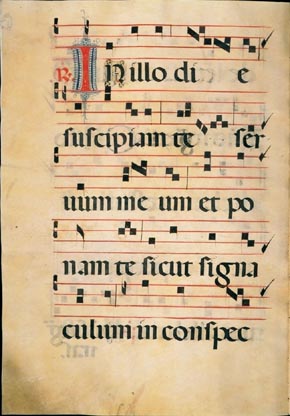 R. In illo di e
suscipiam te ser
uum me um et po
nam te sicut signa
culum in conspec